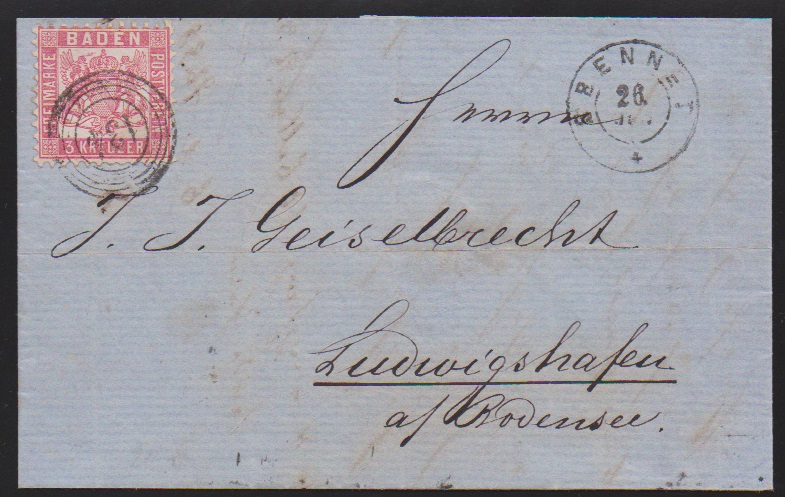 BADEN
FREIMARKE
POSTVEREIN
3 KREUZER
BRENNET
26
Herrn
J. J. Geiselbrecht
Ludwigshafen
a/ Bodensee.